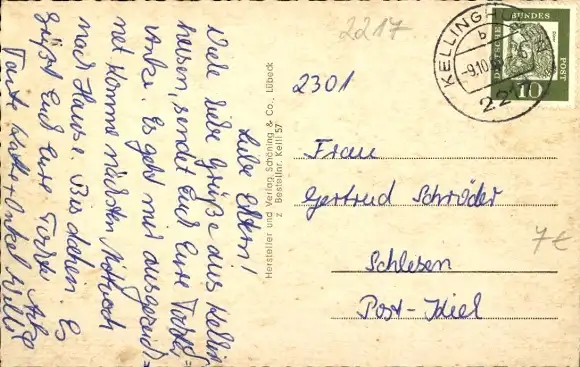 Liebe Eltern!
Viele liebe Grüße aus Kellin
husen, sendet Euch Eure Tochter
Anke. Es geht mir ausgezeich=
net komme nächsten Mittwoch
nach Hause. Bis dahin Es
grüßt Euch Eure Tochter Anke
Tante + Onkel Willi
Hersteller und Verlag Schöning & Co., Lübeck
z Bestellnr. Kelli 57
2217
2301
KELLINGH
b
-9.10.
221
DEUTSCHE BUNDESPOST
10
Frau
Gertrud Schröder
Schlesen
Post-Kiel
7€